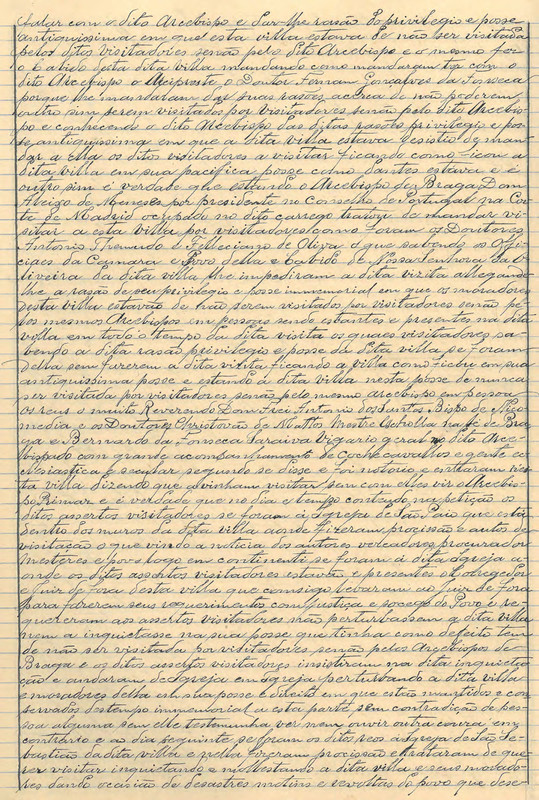 tratar com o dito Arcebispo e dar-lhe rasão do privilegio e posse
antiquissima em que esta villa estava de não ser visitada
pelos ditos visitadores senão pelo dito Arcebispo e o mesmo fez
o Cabido desta dita villa mandando como mandaram ter com o
dito Arcebispo o Arcipreste o Doutor Fernam Gonçalves da Fonseca
porque lhe mandaram dar suas rasões acerca de não poderem
outro sim serem visitados por visitadores senão pelo dito Arcebis-
po e conhecendo o dito Arcebispo das ditas rasões privilegio e pos-
se antiquissima em que a dita villa estava desistio de man-
dar a ella os ditos visitadores a visitar ficando como ficou a
dita villa em sua pacifica posse como dantes estava e é
outro sim é verdade que estando o Arcebispo de Braga Dom
Aleixo de Menezes por presidente no Conselho de Portugal na Cor-
te de Madrid ocupado no dito carrego tratou de mandar vi-
sitar a esta villa por visitadores como foram os Doutores
Antonio e Felleciano de Oliva o que sabendo os Offi-
ciaes da Camara e Povo della e Cabido de Nossa Senhora da O-
liveira da dita villa lhe impediram a dita visita allegando-
lhe a rasão de seu privilegio e posse immemorial em que os moradores
desta villa estavão de não serem visitados por visitadores senão pe-
los mesmos Arcebispos em pessoas sendo estantes e presentes na dita
villa em todo o tempo da dita visita os quaes visitadores sa-
bendo a dita rasão privilegio e posse da dita villa se foram
della sem fazerem a dita visita ficando a villa como ficou em sua
antiquissima posse e estando a dita villa nesta posse de nunca
ser visitada por visitadores senão pelo mesmo arcebispo em pessoa
os reus o muito Reverendo Dom Frei Antonio dos Santos Bispo de Nico-
media e os Doutores Christovão de Mattos Mestre Escholla na Sé de Bra-
ga e Bernardo da Fonseca Saraiva Vigario geral no dito Arce-
bispado com grande acompanhamento de Coche cavallos e gente ec-
clesiastica e secular segundo se disse e foi notorio e entraram nes-
ta villa dizendo que a vinham visitar sem com elles vir o Arcebis-
po Primaz e é verdade que no dia e tempo conteudo na petição os
ditos assertos visitadores se foram á Igreja de São Paio que está
dentro dos muros da dita villa aonde fizeram procissão e autos de
visitação o que vindo a noticia dos autores vereadores procurador
Mesteres e povo logo em continenti se foram á dita Igreja a-
onde os ditos assertos visitadores estavão e presentes o Corregedor
e juiz de fora desta villa que comsigo levaram ao juiz de fora
para fazerem seus requerimentos com justiça e socego do Povo e re-
quereram aos assertos visitadores não perturbassem a dita villa
nem a inquietasse na sua posse que tinha como de feito tem
de não ser visitada por visitadores senão pelos Arcebispos de
Braga e os ditos assertos visitadores insistiram na dita inquieta-
ção e andaram de Igreja em Igreja perturbando a dita villa
e moradores della em sua posse e direito em que estão mantidos e con-
servados des tempo immemorial a esta parte sem contradição de pes-
soa alguma sem elle testemunha ver nem ouvir outra cousa em
contrario e ao dia seguinte se foram os ditos reos á Igreja de São Se-
bastião da dita villa e nella fizeram procissão e trataram de que-
rer visitar inquietando e molestando a dita villa e seus morado-
res dando occasião de desastres motins e revoltas do povo que dese-